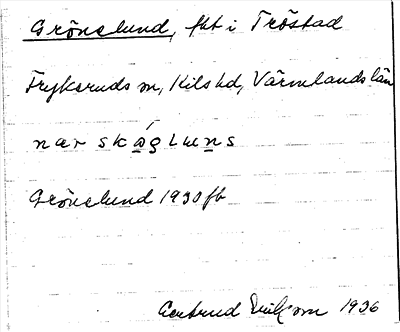 Grönelund, fbt i Tröstad
Frykeruds sn, Kils hd, Värmlands län
nær skǫ́glu̲n̲s
Grönelund 1930 fb
Gertrud Ericsson 1936